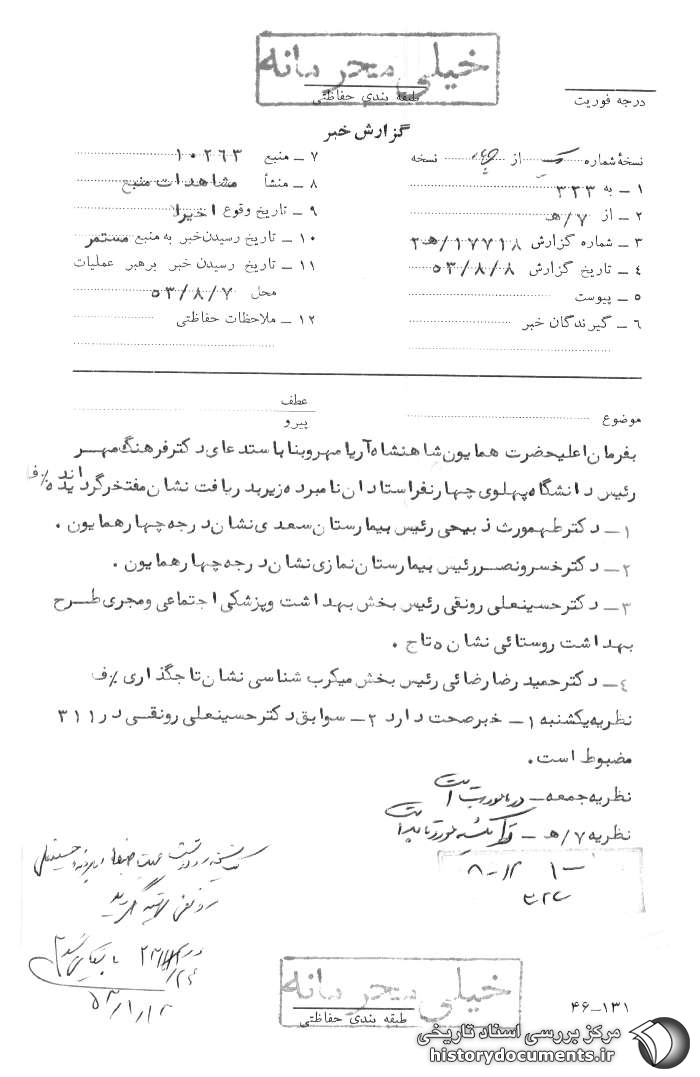 خیلی محرمانه
طبقه بندی حفاظتی
درجه فوریت
گزارش خبر
نسخهٔ شماره یک از چهار نسخه
۱ ــ به ۳۲۳
۲ ــ از ۷/هـ
۳ ــ شماره گزارش ۱۷۷۱۸/هـ۲
۴ ــ تاریخ گزارش ۵۳/۸/۸
۵ ــ پیوست
۶ ــ گیرندگان خبر
۷ ــ منبع ۱۰۲۶۳
۸ ــ منشأ مشاهدات منبع
۹ ــ تاریخ وقوع اخیرا
۱۰ ــ تاریخ رسیدن خبر به منبع مستمر
۱۱ ــ تاریخ رسیدن خبر برهبر عملیات
محل ۵۳/۸/۷
۱۲ ــ ملاحظات حفاظتی
موضوع
عطف
پیرو
بفرمان اعلیحضرت همایون شاهنشاه آریا مهر و بنا باستدعای دکتر فرهنگ مهر
رئیس دانشگاه پهلوی چهار نفر استادان نامبرده زیر بدریافت نشان مفتخر گردیده اند %ف
۱ــ دکتر طهمورث ذبیحی رئیس بیمارستان سعدی نشان درجه چهار همایون .
۲ــ دکتر خسرو نصر رئیس بیمارستان نمازی نشان درجه چهار همایون .
۳ــ دکتر حسینعلی رونقی رئیس بخش بهداشت وپزشکی اجتماعی ومجری طرح
بهداشت روستائی نشان ه تاج .
۴ــ دکتر حمید رضا رضائی رئیس بخش میکرب شناسی نشان تاجگذاری %ف
نظریه یکشنبه ۱ــ خبر صحت دارد ۲ــ سوابق دکتر حسینعلی رونقی در ۳۱۱
مضبوط است.
نظریه جمعه ــ
نظریه ۷/هـ ــ
خیلی محرمانه
طبقه بندی حفاظتی
۴۶-۱۳۱
مرکز بررسی اسناد تاریخی
historydocuments.ir